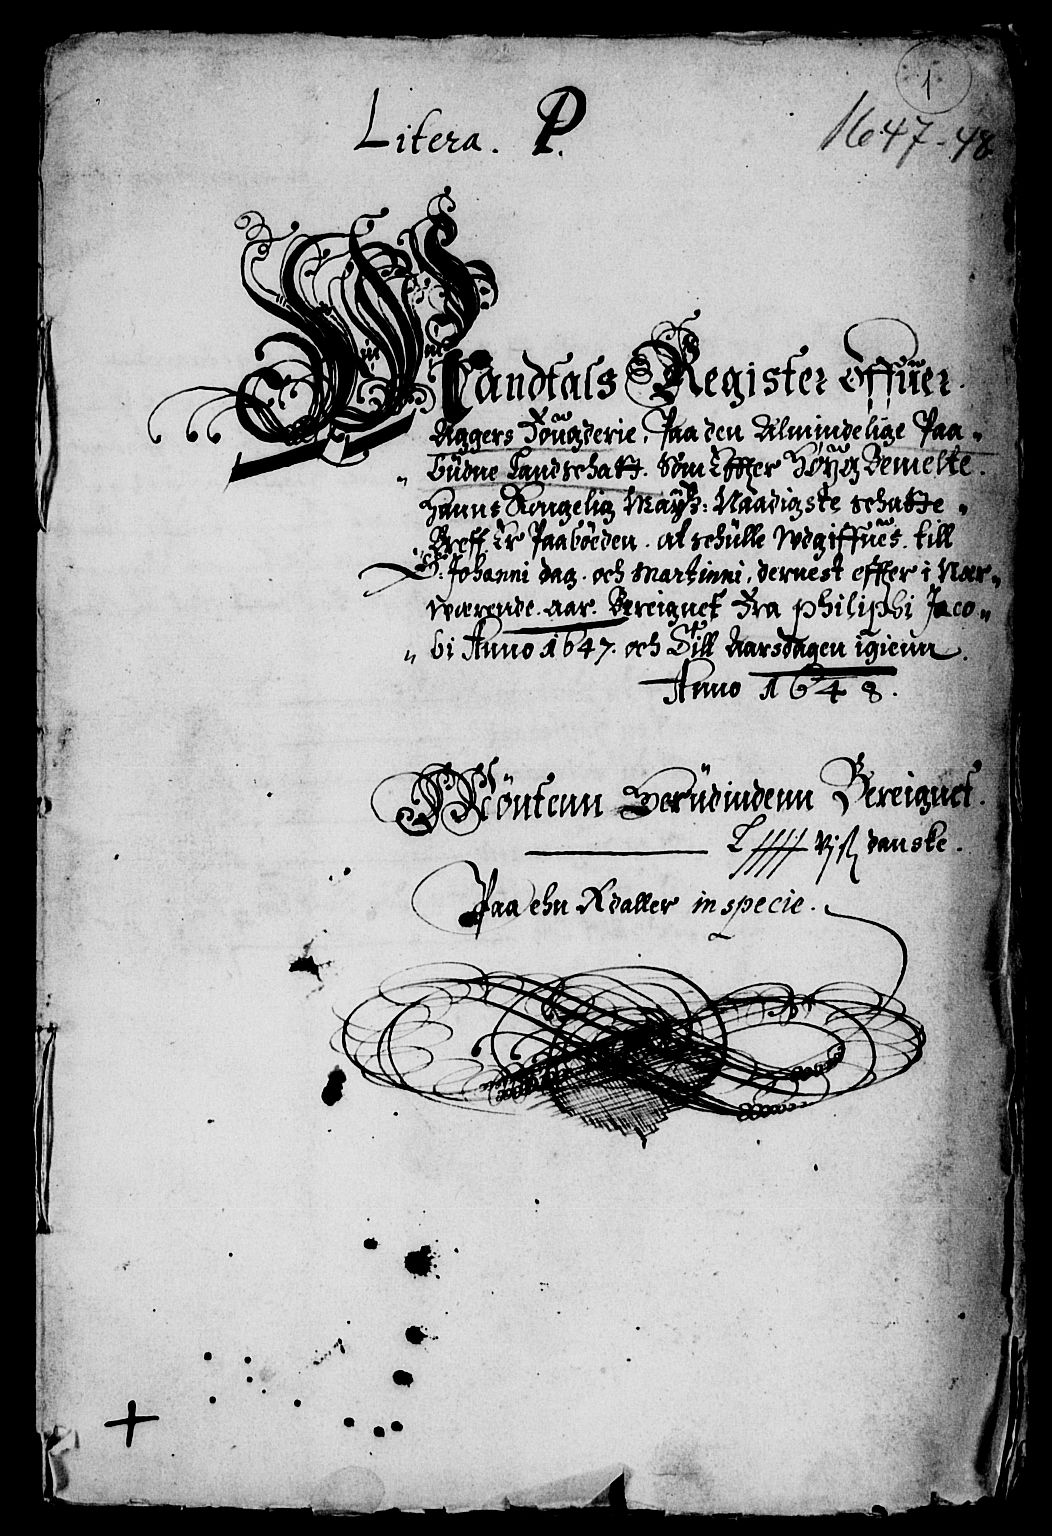 1
Litera. P.
1647-48
Mandtals Register offuer
Aggers Fougderie, Paa den Almindelige Paa„
„ budne Landschatt. Som Effter Høyg Bemelte.
Hanns Kongelig Maÿtz: Naadigste schatte„
Breff Er Paaboeden. at schulle Vdgiffues. till
S: Johanni dag. och Martinni, dernest effter i Nær„
værende. aar. Bereignet Fra Philiphi Jaco„
„ bi Anno 1647. och Till Aarsdagen igienn.
Anno 1648.
Mönten Herudindenn Bereignet.
danske.
Paa ehn Rdaller in specie.